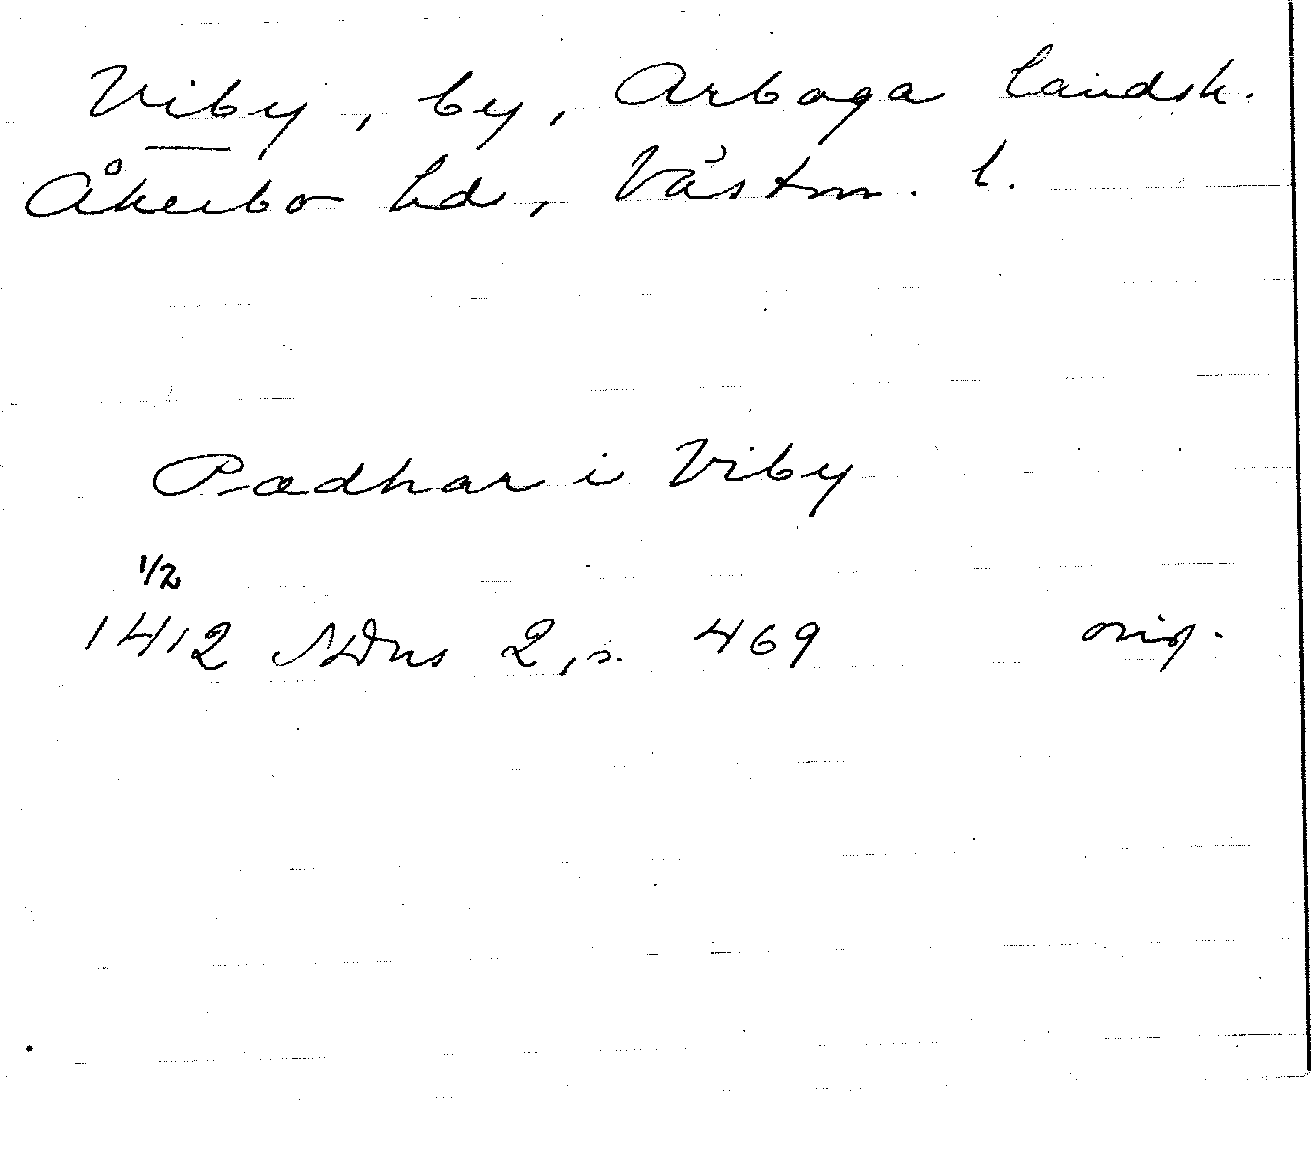 Viby, by, Arboga landsk.
Åkerbo hd, Västm. l.
Pædhar i Viby
1/2
1412 SDns 2, s. 469 orig.